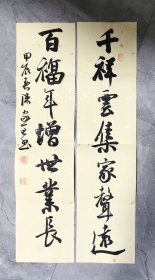 千祥雲集家聲遠
百福年增世業長
甲辰